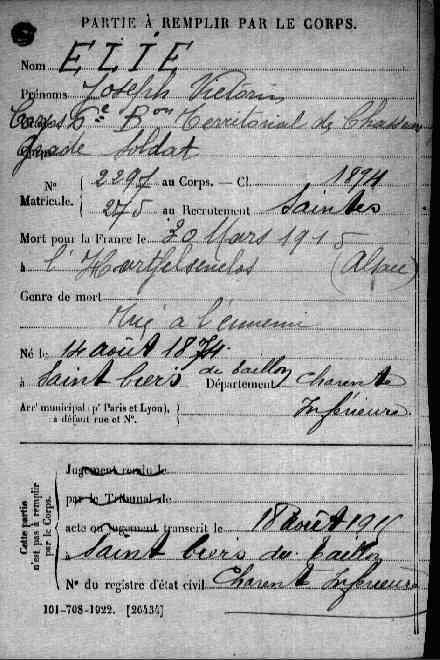 PARTIE À REMPLIR PAR LE CORPS.
Nom ELIE
Prénoms Joseph Victorin
Corps 5e Bon Territorial de Chasseurs
Grade Soldat
N° 2297 au Corps. — Cl. 1894
Matricule. 275 au Recrutement Saintes
Mort pour la France le 20 Mars 1915
à l'Hartfelsenclos (Alsace)
Genre de mort
Tué à l'ennemi
Né le 14 août 1874
à Saint Ciers du Taillon Département Charente
Arrt municipal (pr Paris et Lyon), Inférieure
à défaut rue et N°.
Cette partie
n'est pas à remplir
par le Corps.
Jugement rendu le
par le Tribunal de
acte ou jugement transcrit le 18 août 1915
à Saint Ciers du Taillon
N° du registre d'état civil Charente Inférieure
101-708-1922. [26434]